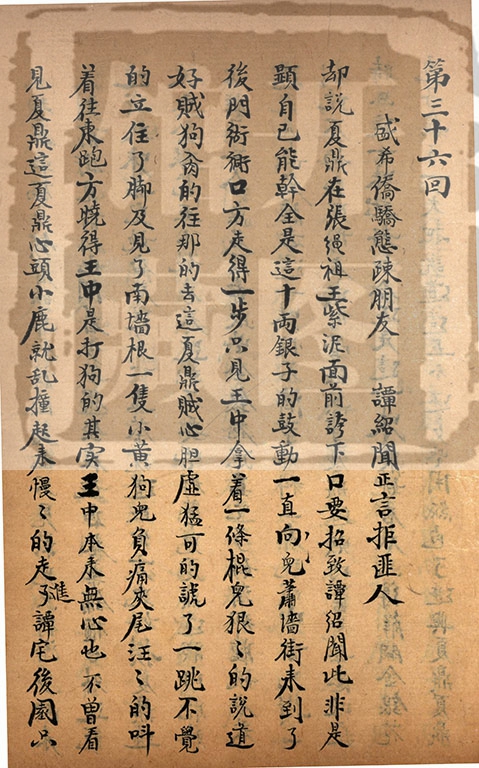 第三十六回
盛希僑驕態疎朋友　譚紹聞正言拒匪人
却說夏鼎在張繩祖王紫泥面前誇下口要招致譚紹聞此非是
顕自己能幹全是這十両銀子的鼓動一直向兒蕭墻街来到了
後門衚衕口方走得一步只見王中拿着一條棍兒狠〻的說道
好賊狗肏的往那的去這夏鼎賊心胆虛猛可的諕了一跳不覺
的立住了脚及見了南墻根一隻小黄狗兒負痛夾尾汪〻的叫
着往東跑方暁得王中是打狗的其实王中本来無心也不曾看
見夏鼎這夏鼎心頭小鹿就乱撞起来慢〻的走進了譚宅後園只